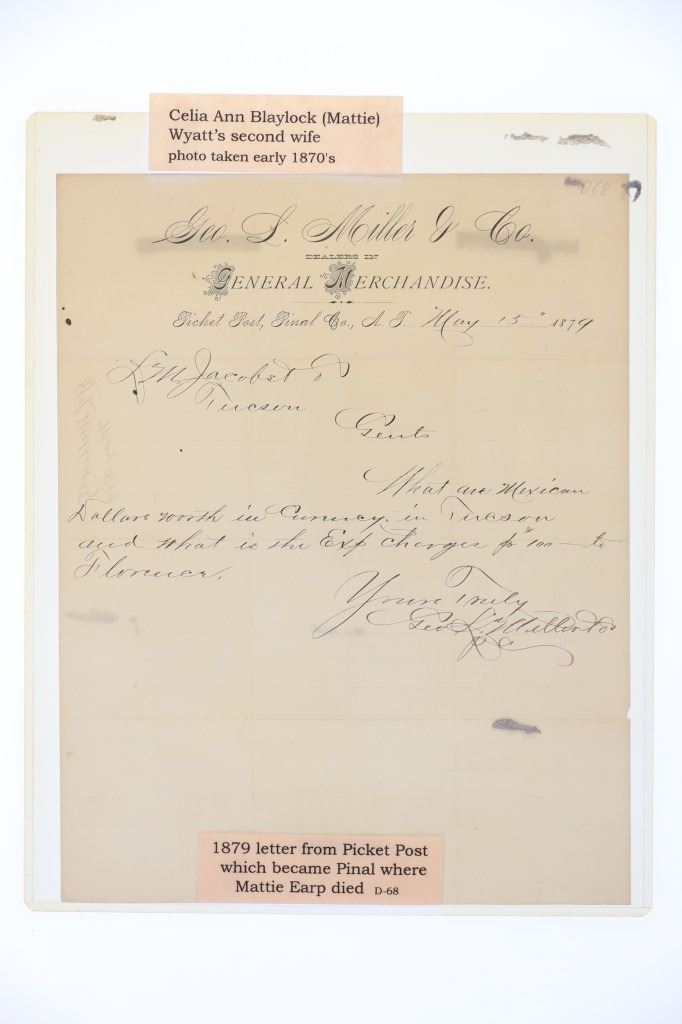 Celia Ann Blaylock (Mattie)
Wyatt's second wife
photo taken early 1870's
D68
Geo. L. Miller & Co.
DEALERS IN
GENERAL MERCHANDISE.
Picket Post, Pinal Co., A. T. May 15" 1879
L M Jacobs & Co
Tucson
Gents
What are Mexican
Dollars worth in Currency in Tucson
and what is the Exp Charges pr 100 — to
Florence.
Yours Truly
Geo L Miller & Co
1879 letter from Picket Post
which became Pinal where
Mattie Earp died D-68